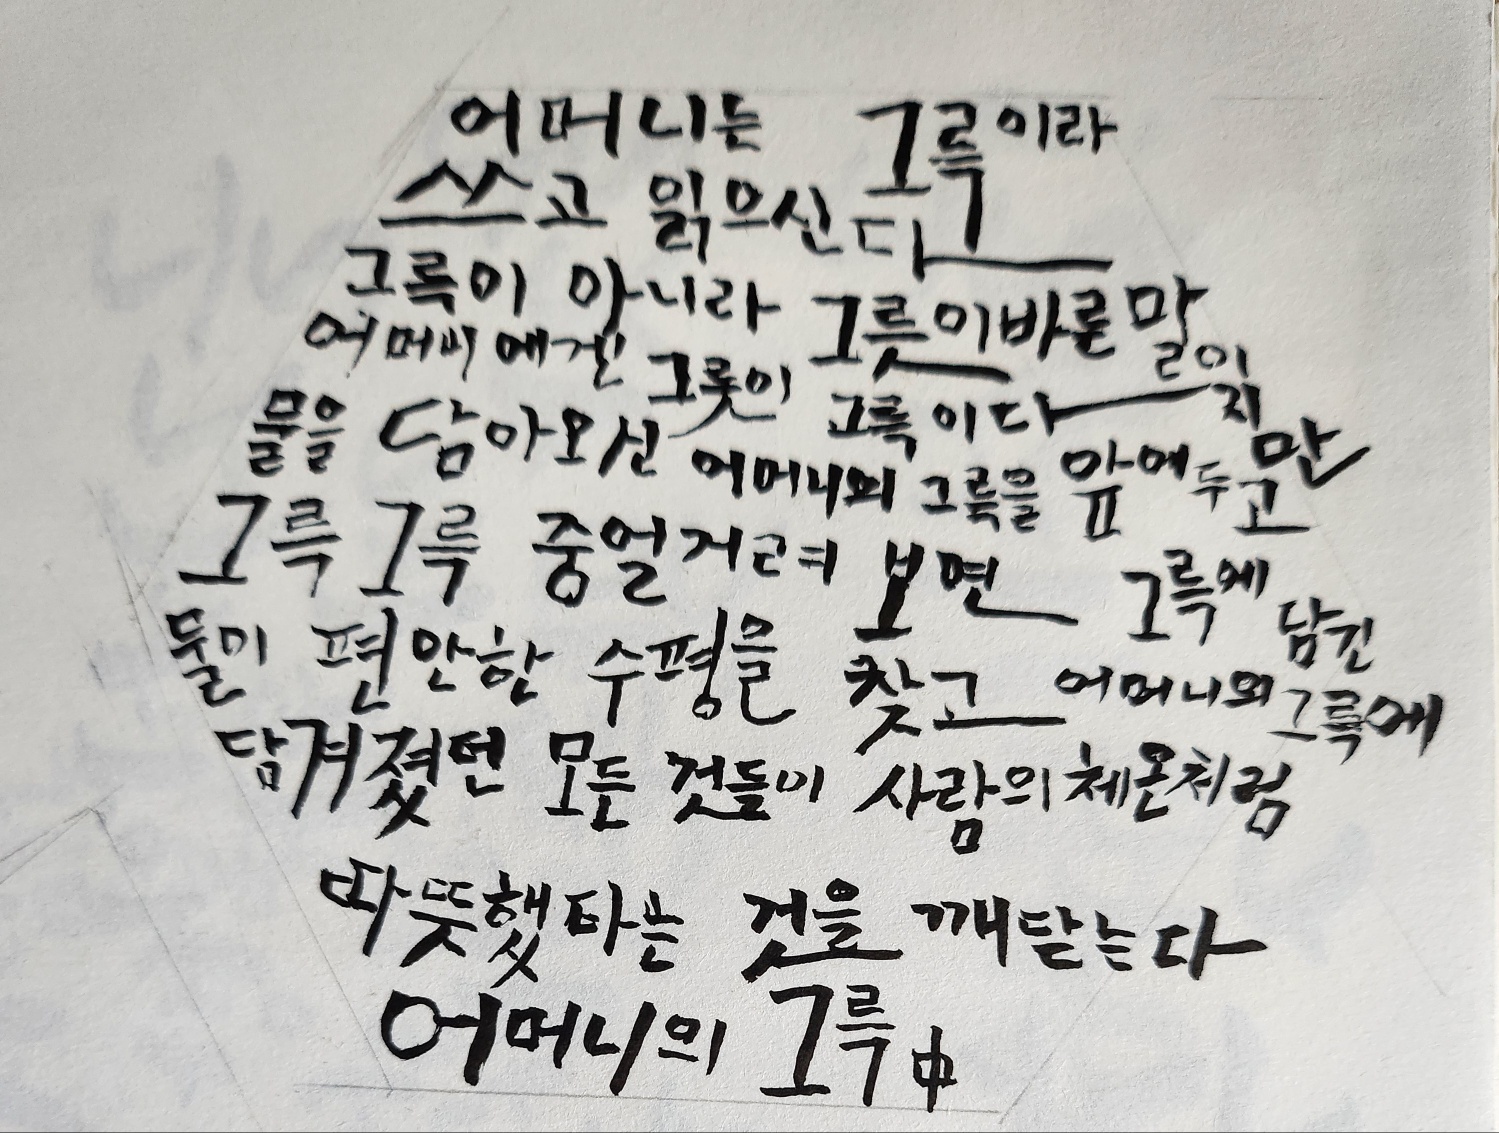 어머니는 그륵이라
쓰고 읽으신다
그륵이 아니라 그릇이 바른 말이지만
어머니에겐 그릇이 그륵이다
물을 담아오신 어머니의 그륵을 앞에 두고
그륵 그륵 중얼거려 보면 그륵에 담긴
물이 편안한 수평을 찾고 어머니의 그륵에
담겨졌던 모든 것들이 사람의 체온처럼
따뜻했다는 것을 깨닫는다
어머니의 그륵 中